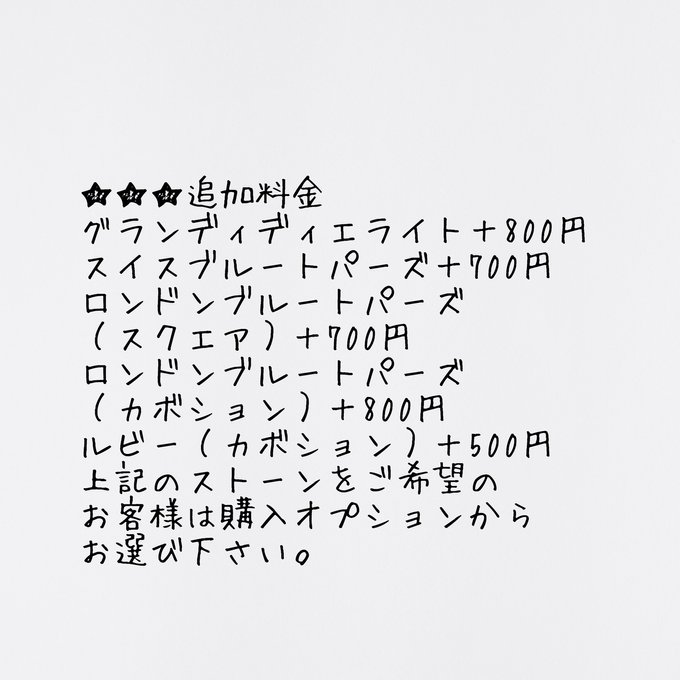 ★★★追加料金
グランディディエライト+800円
スイスブルートパーズ+700円
ロンドンブルートパーズ
(スクエア)+700円
ロンドンブルートパーズ
(カボション)+800円
ルビー(カボション)+500円
上記のストーンをご希望の
お客様は購入オプションから
お選び下さい。